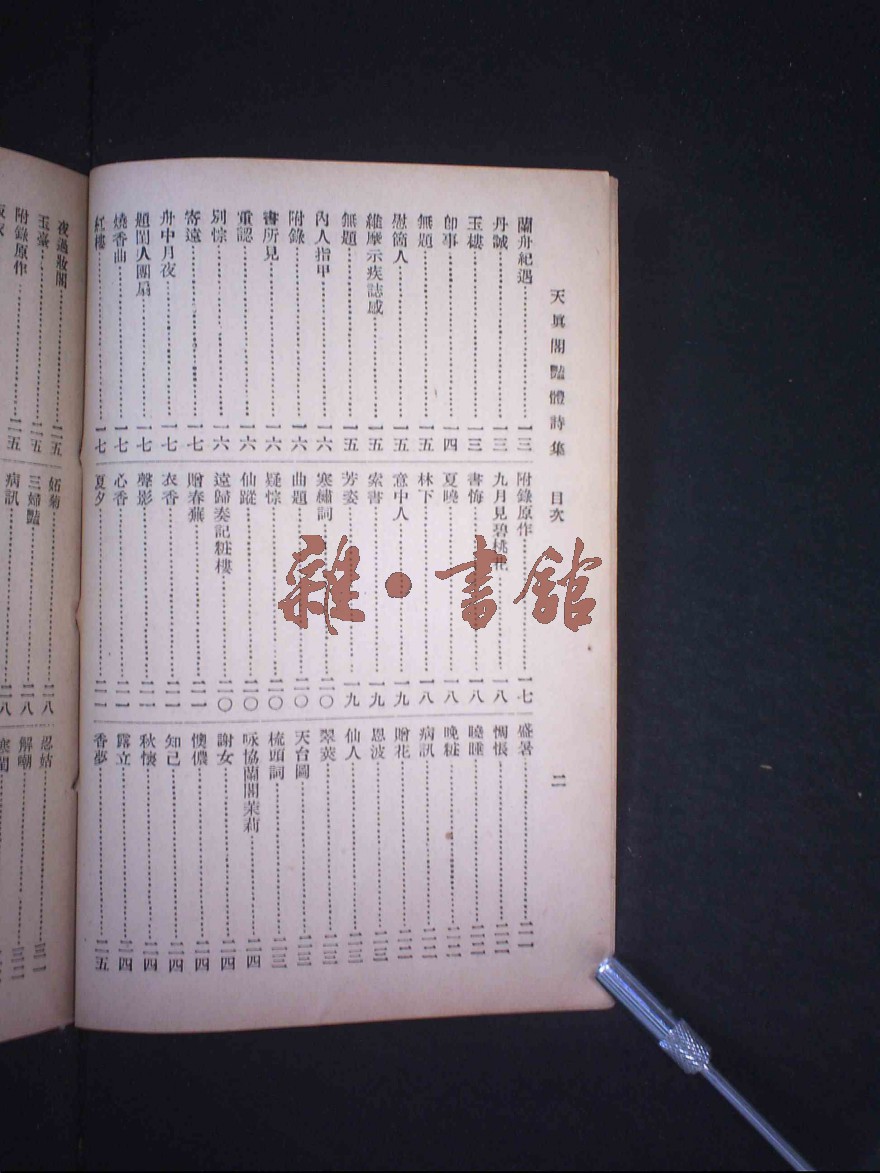 天眞閣豔體詩集 目次 二
蘭舟紀遇 一三
丹誠 一三
玉樓 一三
卽事 一四
無題 一五
慰箇人 一五
維摩示疾誌感 一五
無題 一五
內人指甲 一六
附錄 一六
書所見 一六
重認 一六
別悰 一六
寄遠 一七
舟中月夜 一七
題閨人團扇 一七
燒香曲 一七
紅樓 一七
附錄原作 一七
九月見碧桃花 一八
書悔 一八
夏曉 一八
林下 一八
意中人 一九
索書 一九
芳姿 一九
寒繡詞 二〇
曲題 二〇
疑悰 二〇
仙蹤 二〇
遠歸奏記粧樓 二〇
贈春蕪 二一
衣香 二一
聲影 二一
心香 二一
夏夕 二一
盛暑 二一
惆悵 二二
曉睡 二二
晚粧 二二
病訊 二二
贈花 二二
恩波 二三
仙人 二三
翠莢 二三
天台圖 二三
梳頭詞 二三
咏協蘭閣茉莉 二四
謝女 二四
懊儂 二四
知己 二四
秋懷 二四
露立 二四
香夢 二五
夜過妝閣 二五
玉臺 二五
附錄原作 二五
妬菊 二八
三婦豔 二八
病訊 二八
忍姑 三一
解嘲 三二
雜·書館